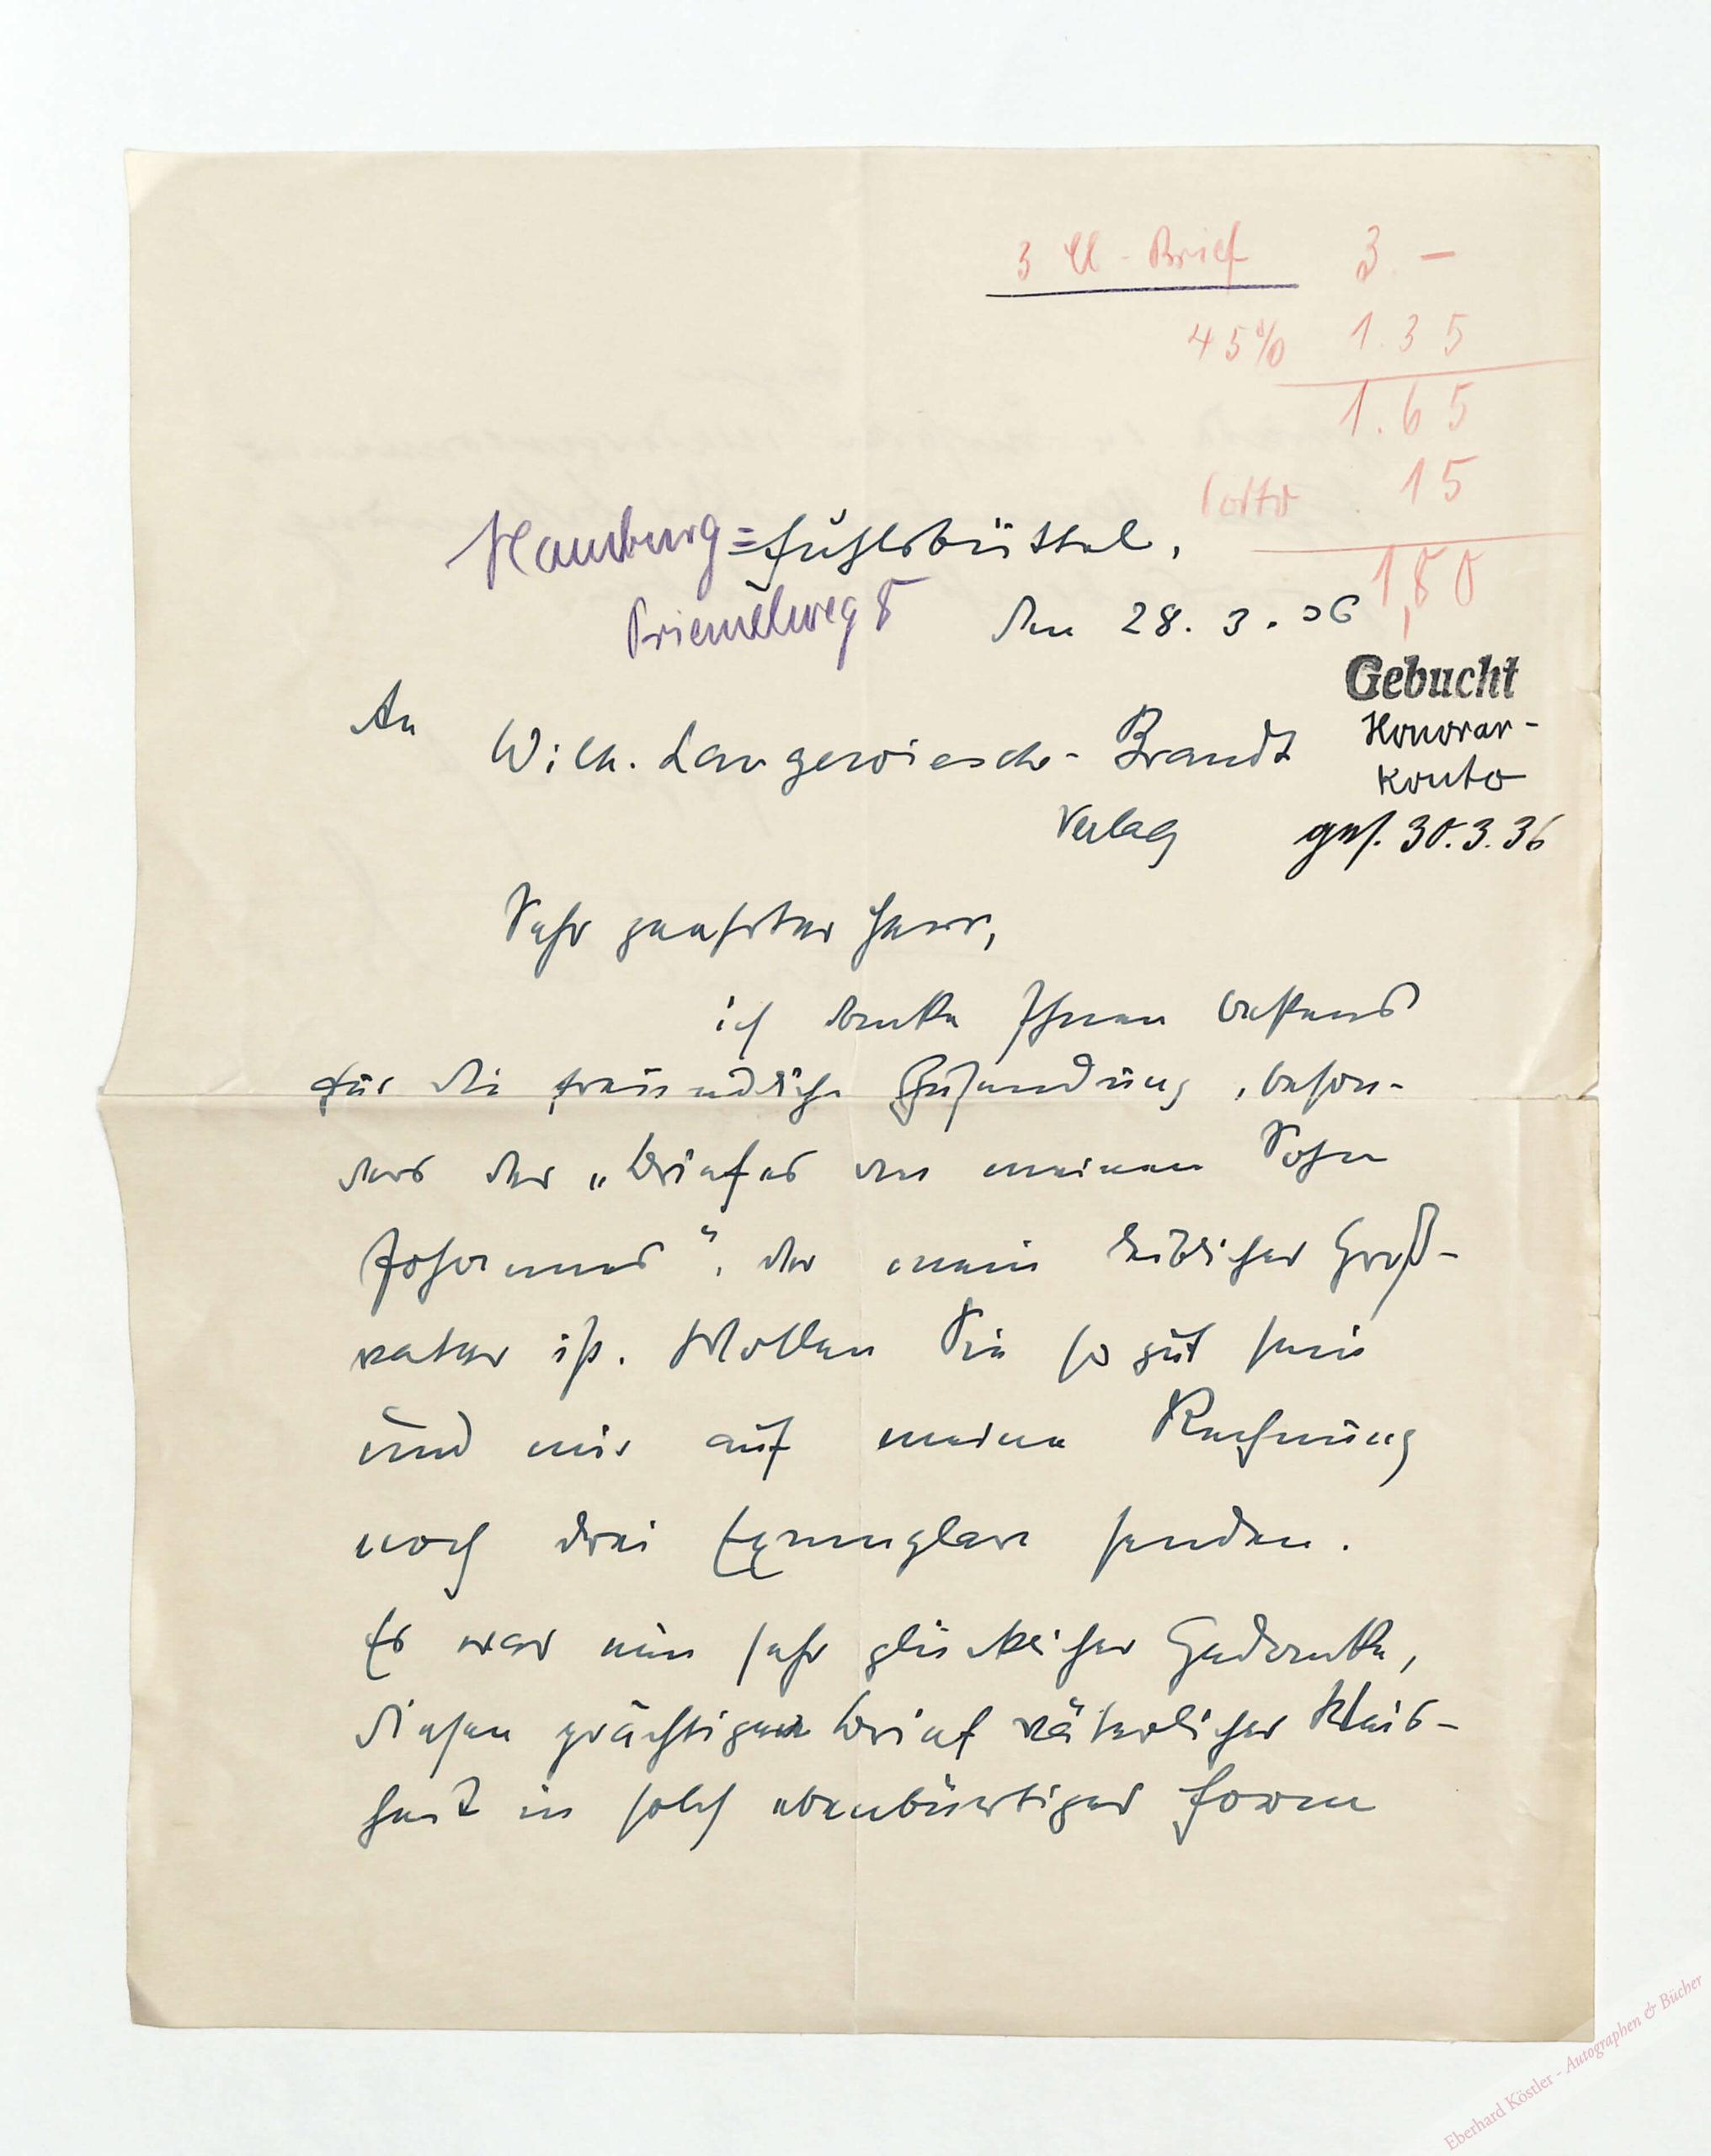 3 Cl - Brief 3 -
45% 1.35
1.65
Porto 15
1,80
Hamburg=Fuhlsbüttel,
Primelweg 8 den 28.3.36
An
Wilh. Langewiesche-Brandt
Verlag
Gebucht
Honorar-
konto
30.3.36
Sehr geehrter Herr,
ich danke Ihnen bestens
für die freundliche Zusendung, beson-
ders des „Briefes an meinen Sohn
Johannes", der mein leiblicher Groß-
vater ist. Wollen Sie so gut sein
und mir auf meine Rechnung
noch drei Exemplare senden.
Es war ein sehr glücklicher Gedanke,
diesen prächtigen Brief väterlicher Weis-
heit in solch ebenbürtiger Form
Eberhard Köstler - Autographen & Bücher